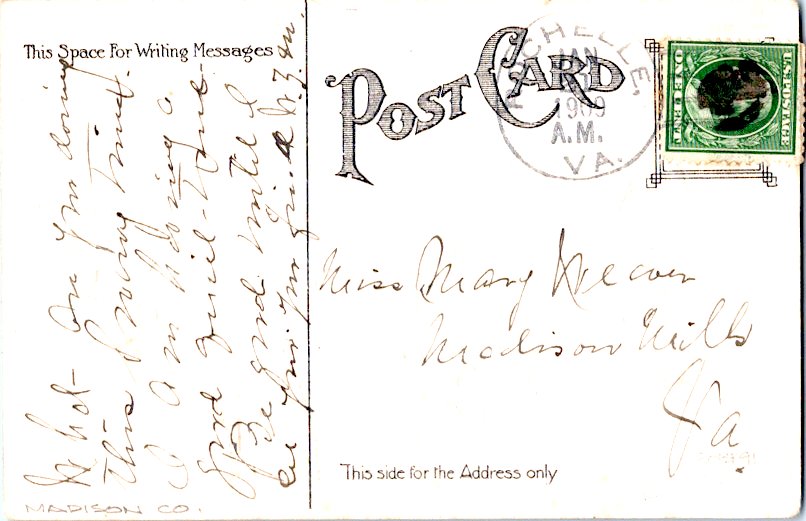 This Space For Writing Messages
POST CARD
ROCHELLE,
JAN
1909
A.M.
VA.
U.S. POSTAGE
ONE CENT
What are you doing
this rainy time.
I am doing a
good quiet time
be good until I
see you
Miss Mary Weaver
Madison Mills
Va.
This side for the Address only
MADISON CO.